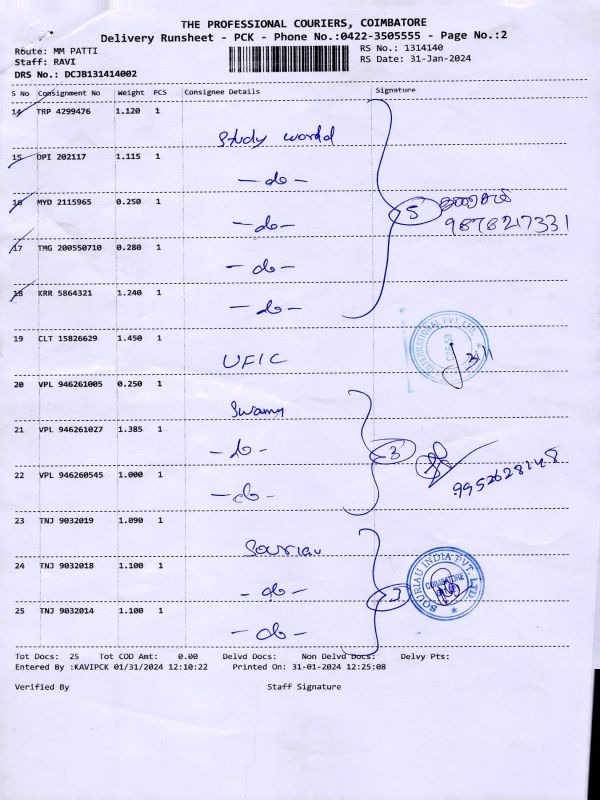 THE PROFESSIONAL COURIERS, COIMBATORE
Delivery Runsheet - PCK - Phone No.:0422-3505555 - Page No.:2
Route: MM PATTI RS No.: 1314140
Staff: RAVI RS Date: 31-Jan-2024
DRS No.: DCJB131414002
S No Consignment No Weight PCS Consignee Details Signature
14 TRP 4299476 1.120 1
Study world
15 OPI 202117 1.115 1
-do-
16 MYD 2115965 0.250 1
-do-
5
9878217331
17 TMG 200550710 0.280 1
-do-
18 KRR 5864321 1.240 1
-do-
19 CLT 15826629 1.450 1
UFIC
INTERNATIONAL PVT. LTD.
20 VPL 946261005 0.250 1
Swamy
21 VPL 946261027 1.385 1
-do-
3
22 VPL 946260545 1.000 1
-do-
9952628148
23 TNJ 9032019 1.090 1
Souriau
24 TNJ 9032018 1.100 1
-do-
SOURIAU INDIA PVT. LTD.
COIMBATORE
25 TNJ 9032014 1.100 1
-do-
Tot Docs: 25 Tot COD Amt: 0.00 Delvd Docs: Non Delvd Docs: Delvy Pts:
Entered By :KAVIPCK 01/31/2024 12:10:22 Printed On: 31-01-2024 12:25:08
Verified By Staff Signature